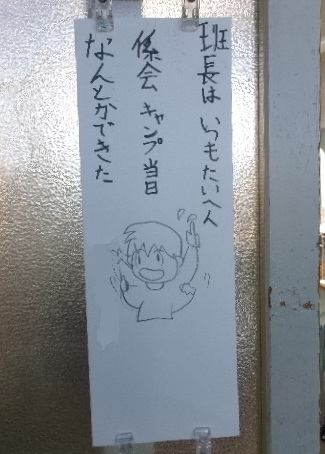 班長は いつもたいへん
係会 キャンプ当日
なんとかできた